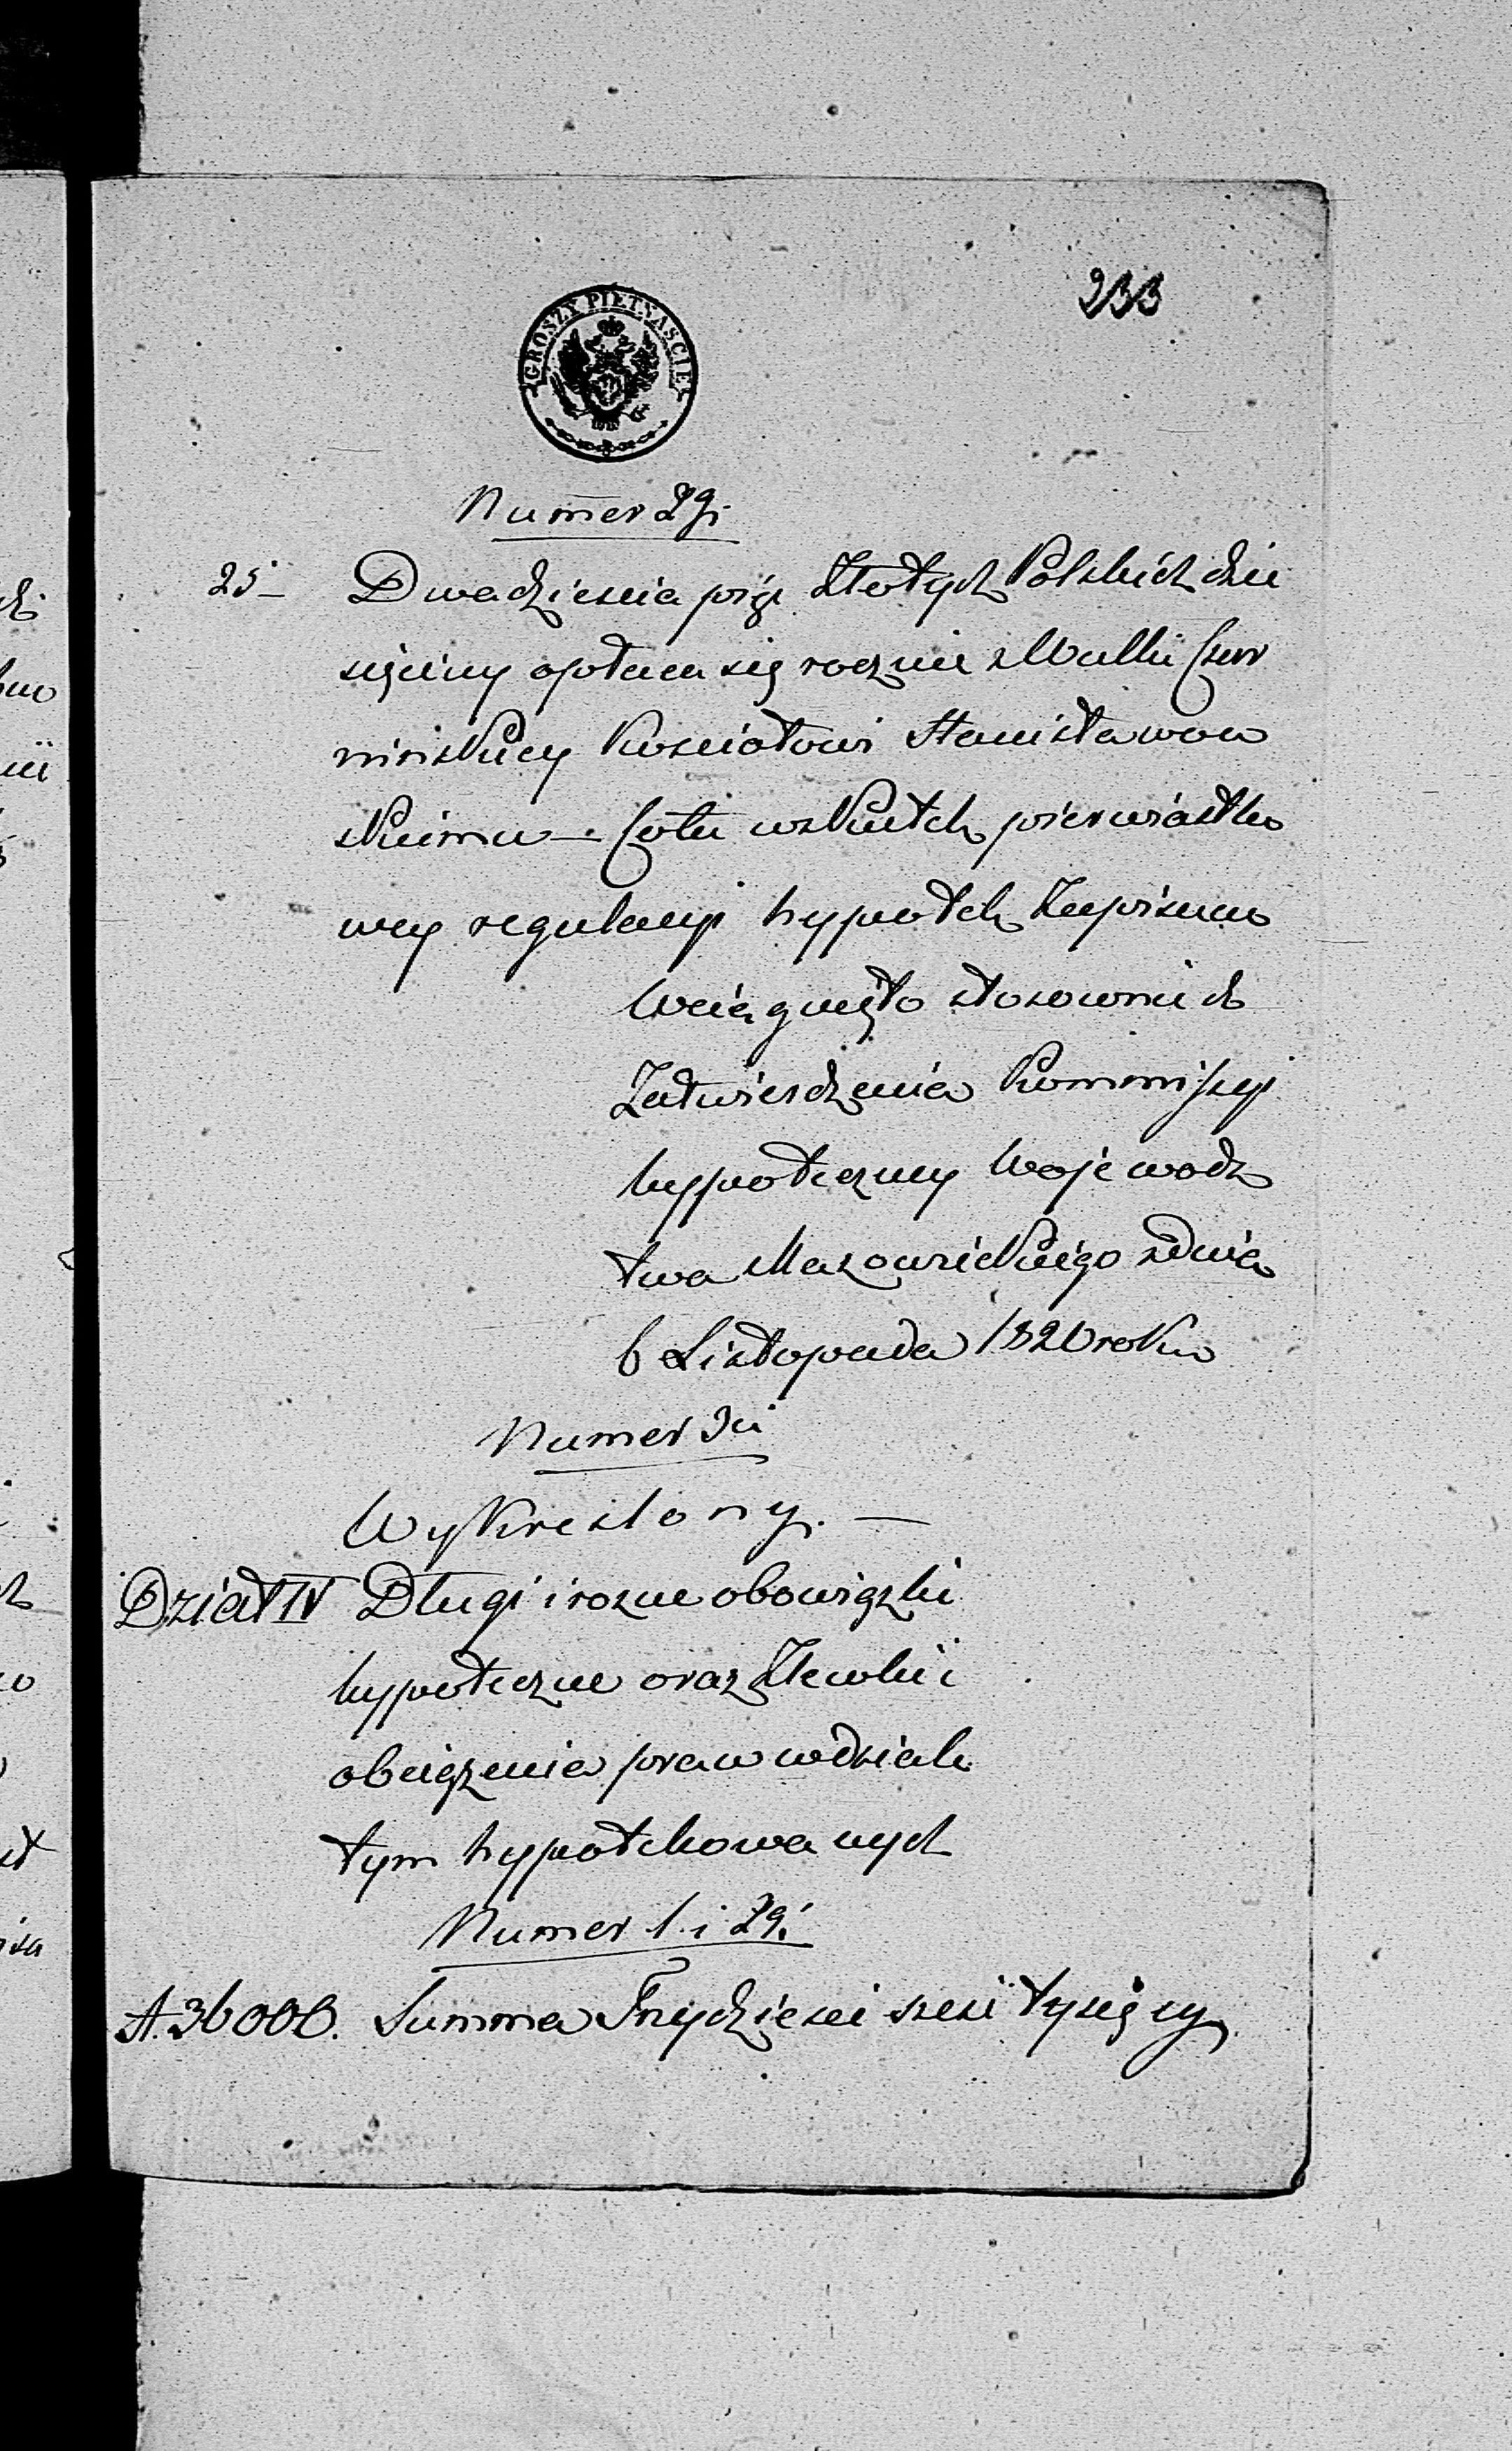 233
GROSZY PIĘTNAŚCIE
Numer 2gi
25 – Dwadzieścia pięć Złotych Polskich dzie
sięciny opłaca się rocznie z Wulki Czar
nińskiey Kościołowi Stanisławow
skiemu – Co tu wskutek pierwiastko
wey regulacyi hypotek Zapisano
Wciągnięto stosownie do
Zatwierdzenia Kommissyi
hypoteczney Wojewodz
twa Mazowieckiego z dnia
6 Listopada 1820 roku
Numer 3ci
Wykreślony. –
Dział IV Długi i rożne obowiązki
hypoteczne oraz Zlewki i
obciążenia praw w dziale
tym hypotekowanych
Numer 1. i 2gi
A. 36000. Summa Trzydzieści sześć tysięcy